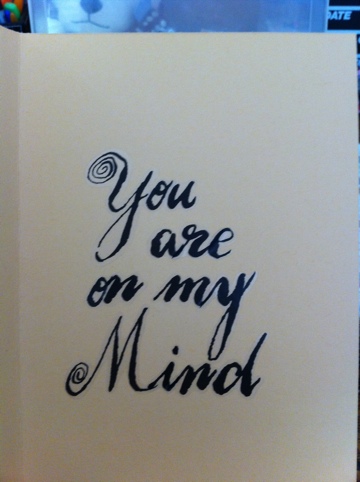 You
are
on my
Mind
ATE